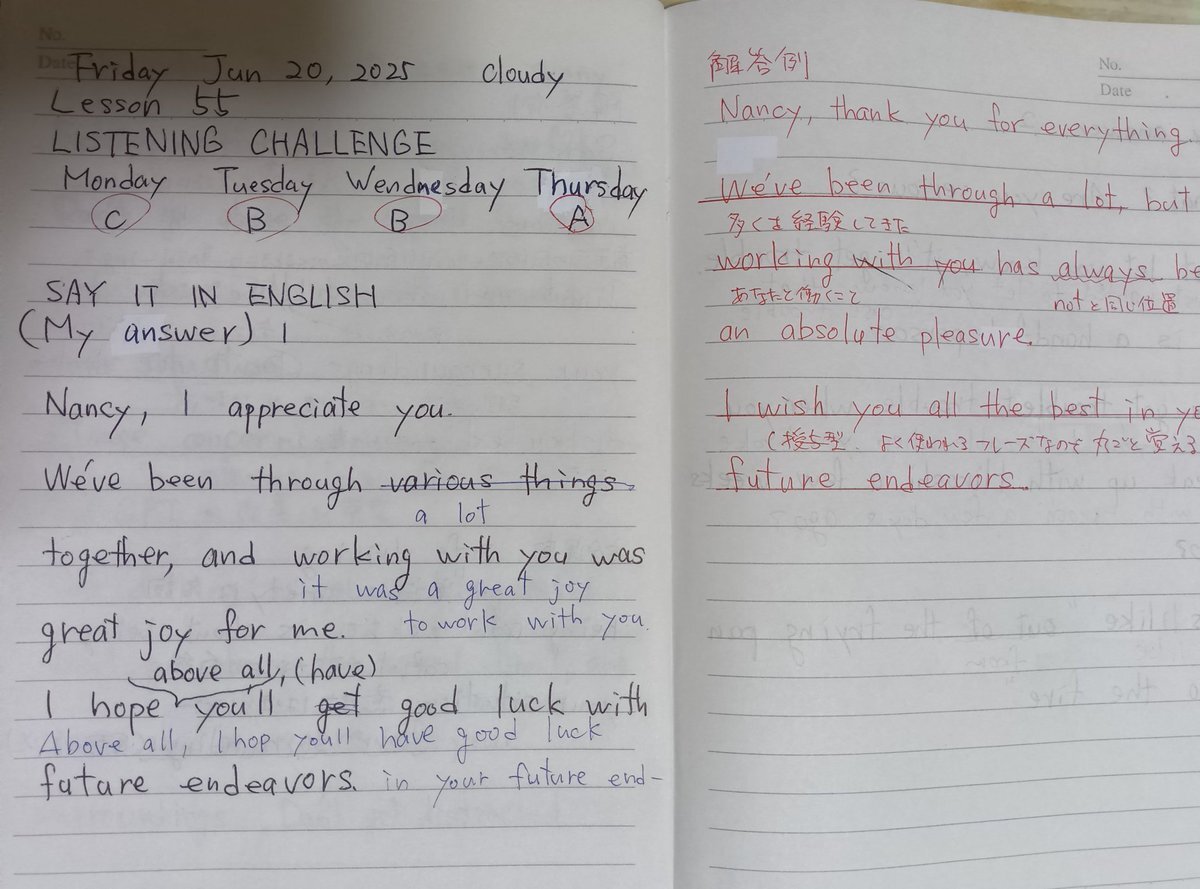 No.
Date Friday Jun 20, 2025 cloudy
Lesson 55
LISTENING CHALLENGE
Monday Tuesday Wendnesday Thursday
C B B A
SAY IT IN ENGLISH
(My answer) 1
Nancy, I appreciate you.
We've been through various things
a lot
together, and working with you was
it was a great joy
great joy for me. to work with you.
above all, (have)
I hope you'll get good luck with
Above all, I hop you'll have good luck
future endeavors. in your future end-
解答例
No.
Date
Nancy, thank you for everything.
We've been through a lot, but
多くを経験してきた
working with you has always be
あなたと働くこと notと同じ位置
an absolute pleasure.
I wish you all the best in yo
(授与型. よく使われるフレーズなので丸ごと覚える
future endeavors.